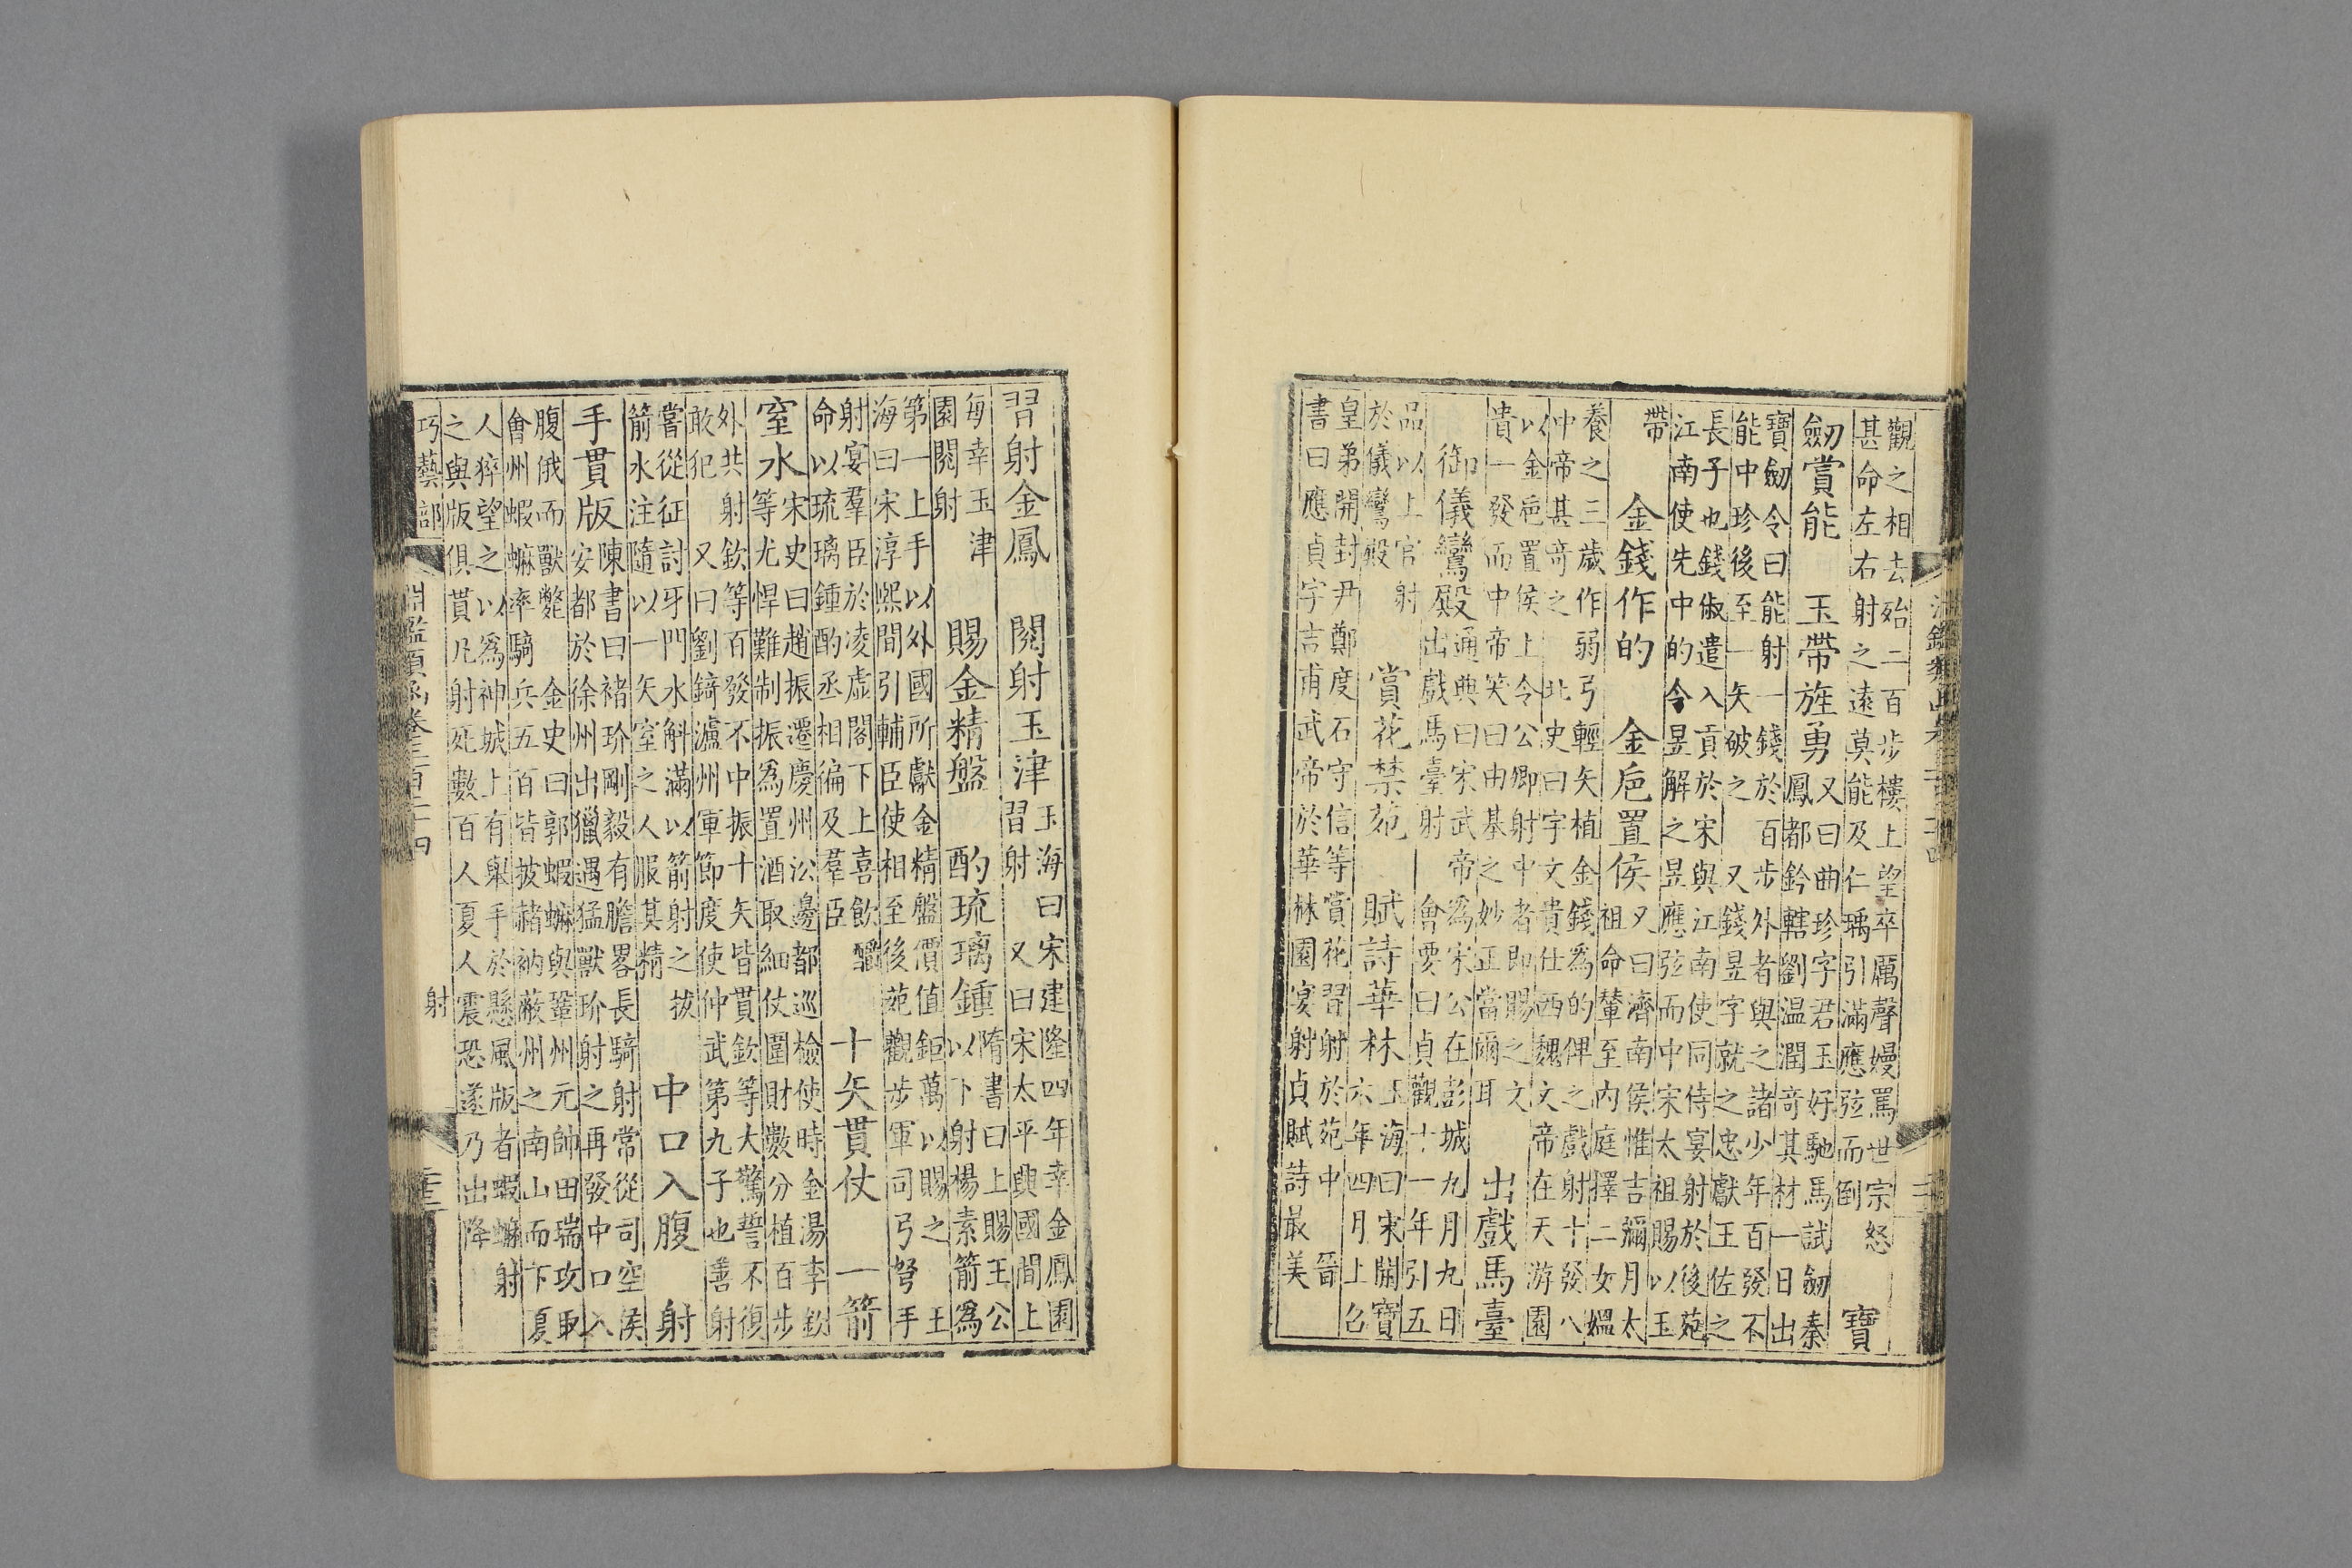 觀之相去殆二百步樓上望卒厲聲嫚罵世宗怒
甚命左右射之遠莫能及仁瑀引滿應弦而倒
寶
劒賞能　玉帶旌勇
又曰曲珍字君玉好馳馬試劒秦
鳳都鈐轄劉温潤奇其材一日出
寶劒令曰能射一錢於百步外者與之諸少年百發不
能中珍後至一矢破之　又錢昱字就之忠獻王佐之
長子也錢俶遣入貢於宋與江南使同侍宴射於後苑
江南使先中的令昱解之昱應弦而中宋太祖賜以玉
帶
金錢作的　金巵置侯
又曰濟南侯惟吉彌月太
祖命輦至内庭擇二女媪
養之三歲作弱弓輕矢植金錢爲的俾之戲射十發八
中帝甚竒之　北史曰宇文貴仕西魏文帝在天游園
以金巵置侯上令公卿射中者即賜之文
貴一發而中帝笑曰由基之妙正當爾耳
出戲馬臺
御儀鸞殿
通典曰宋武帝爲宋公在彭城九月九日
出戲馬臺射　會要曰貞觀十一年引五
品以上官射
於儀鸞殿
賞花禁苑　賦詩華林
玉海曰宋開寶
六年四月上召
皇弟開封尹鄭度石守信等賞花習射於苑中　晉
書曰應貞字吉甫武帝於華林園宴射貞賦詩最美
習射金鳳　閱射玉津
玉海曰宋建隆四年幸金鳳園
習射　又曰宋太平興國間上
每幸玉津
園閱射
賜金精盤　酌琉璃鍾
隋書曰上賜王公
以下射楊素箭爲
第一上手以外國所獻金精盤價值鉅萬以賜之　王
海曰宋淳熙間引輔臣使相至後苑觀步軍司弓弩手
射宴羣臣於凌虚閣下上喜飲釂
命以琉璃鍾酌丞相徧及羣臣
十矢貫仗　一箭
窒水
宋史曰趙振遷慶州沿邊都巡檢使時金湯李欽
等尤悍難制振爲置酒取細仗圍財數分植百步
外共射欽等百發不中振十矢皆貫欽等大驚誓不復
敢犯　又曰劉錡瀘州軍節度使仲武第九子也善射
嘗從征討牙門水斛滿以箭射之拔
箭水注隨以一矢窒之人服其精
中口入腹　射
手貫版
陳書曰褚玠剛毅有膽畧長騎射常從司空侯
安都於徐州出獵遇猛獸玠射之再發中口入
腹俄而獸斃　金史曰郭蝦蟆與鞏州元帥田瑞攻取
會州蝦蟆率騎兵五百皆披赭衲蔽州之南山而下夏
人猝望之以爲神城上有舉手於懸風版者蝦蟆射
之與版俱貫凡射死數百人夏人震恐遂乃出降
巧藝部　淵鑑類函卷三百二十四　射